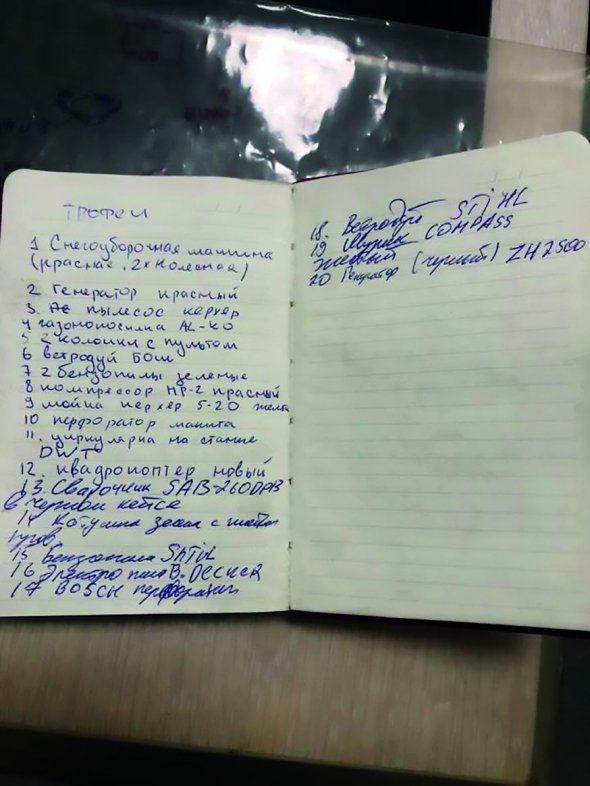 трофеи
1 Снегоуборочная машина
(красная, 2х колесная)
2 генератор красный
3. пылесос керхер
4 газонокосилка AL-KO
5 2 колонки с пультом
6 ветродуй Бош
7 2 бензопилы зеленые
8 компрессор МР-2 красный
9 мойка керхер 5-20 желта
10 перфоратор макита
11. циркулярка на станке
DWT
12. квадрокоптер новый
13. Сварочник SAB-260DAB
в черном кейсе
14 Катушка с
15 Бензопила ShTiL
16 Электро пила B. DECKER
17 BOSCH
18. Ветродуй STiHL
19 COMPASS
желтый
20 Генератор (черный) ZH2500